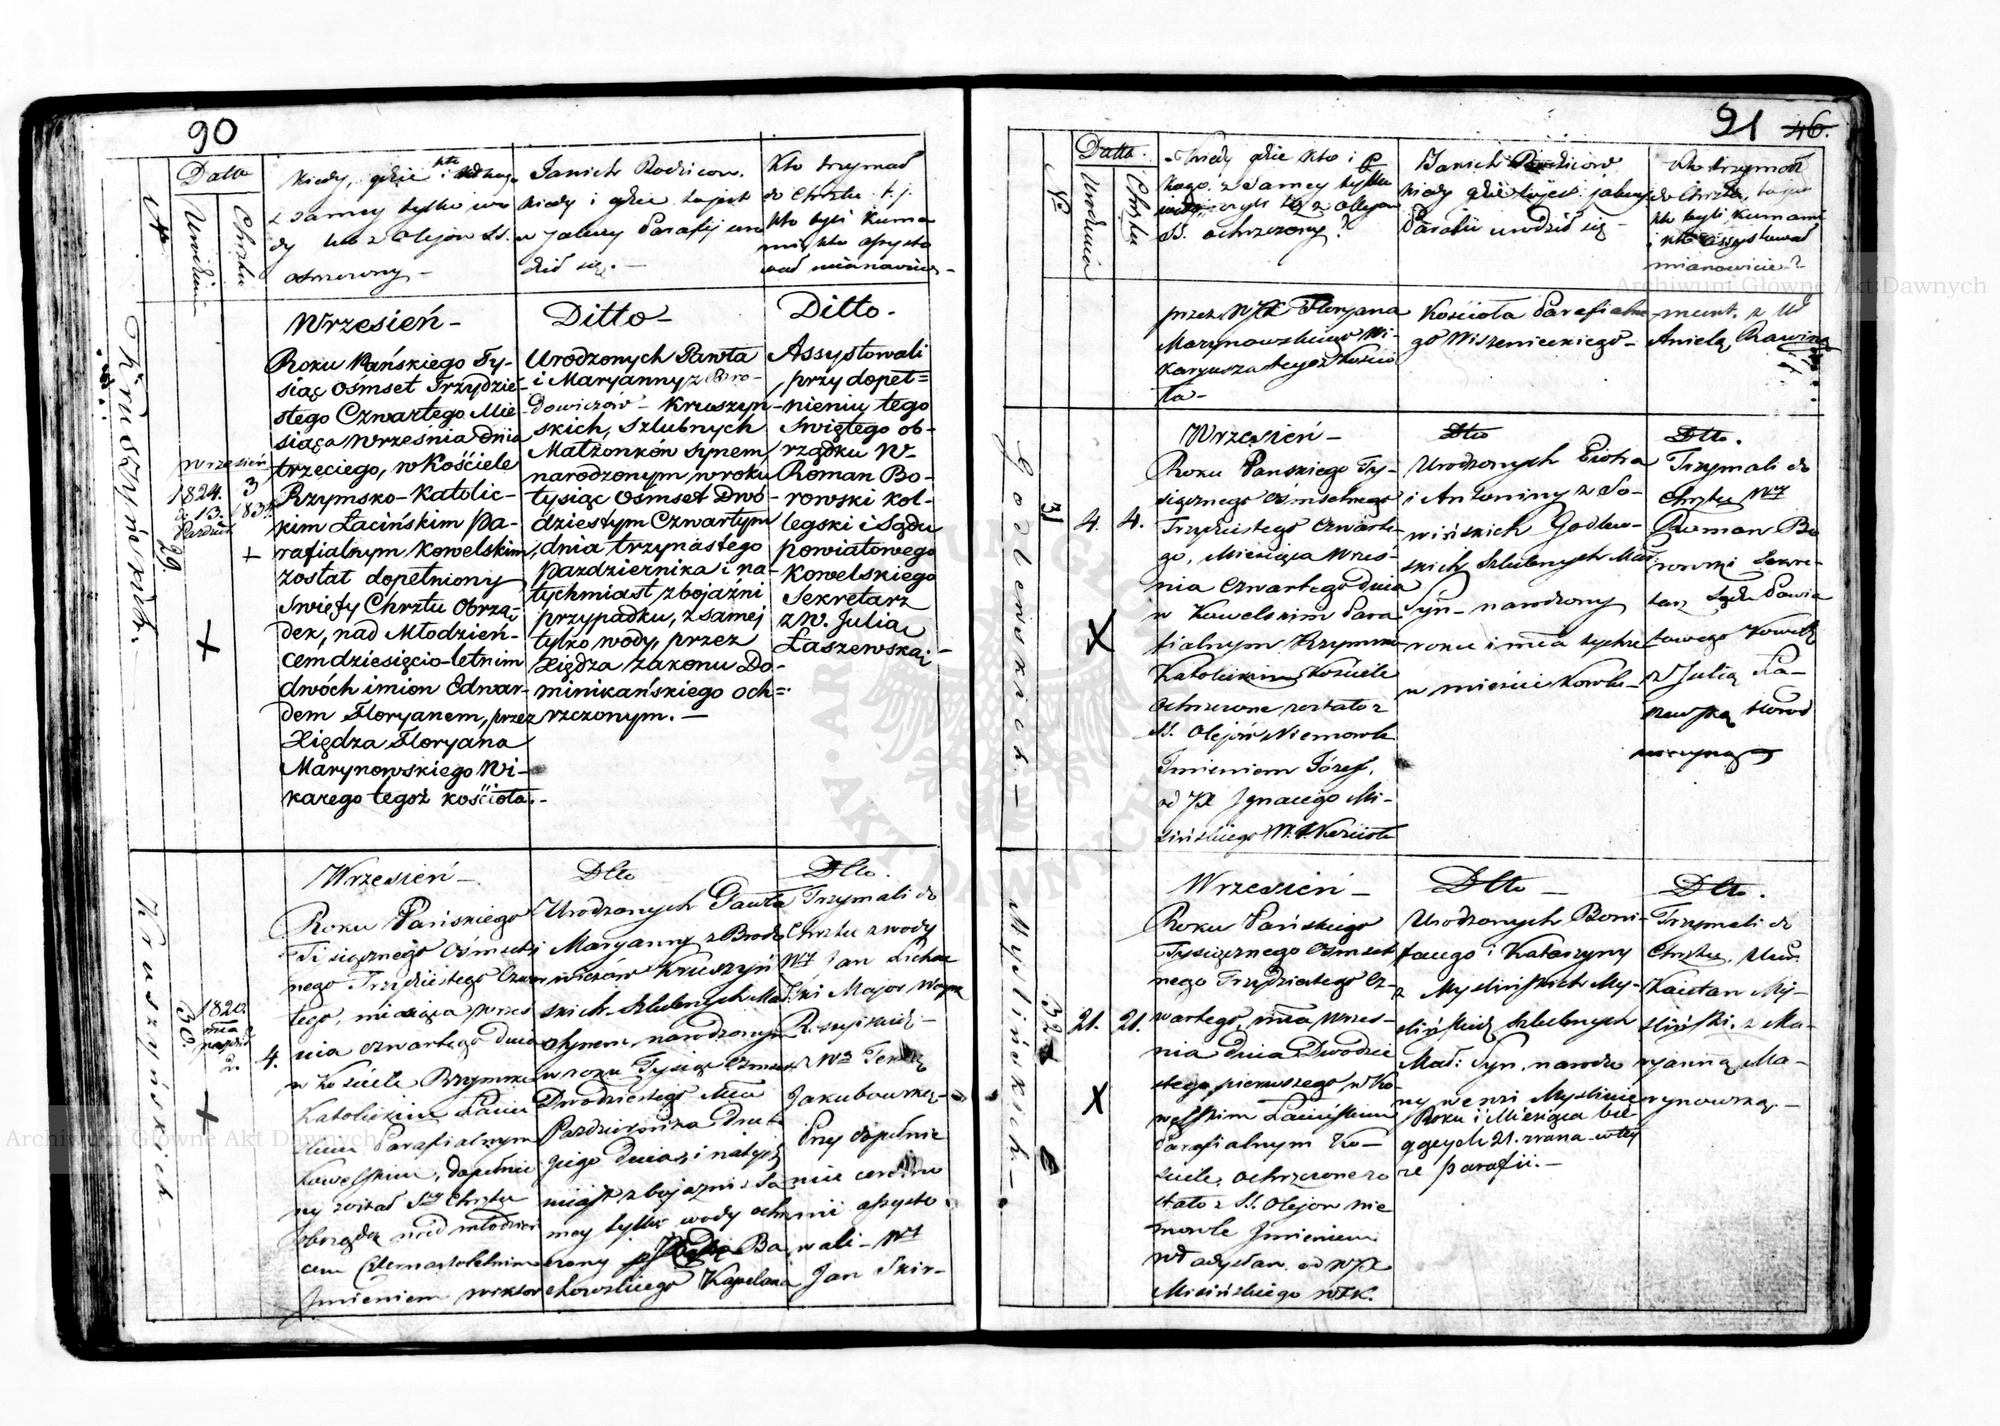 90
Datta
Nro
Urodzin
Chrztu
Kiedy, gdzie kto i kogo
z samey tylko wo
dy lub z Olejow SS.
Jakich Rodzicow.
kiedy i gdzie tojest
w jakiey Parafij uro
dził się. —
Kto trzymał
do Chrztu t. j.
kto byli Kuma
mi, kto assysto
wał mianowicie —
Kruszyńskich.
29
Wrzesień
1824.
d. 13.
3
1834
+
Wrzesień —
Roku Pańskiego Ty-
siąc Ośmset Trzydzie-
stego Czwartego Mie
siąca Września dnia
trzeciego, w Kościele
Rzymsko-Katolic-
kim Łacińskim Pa-
rafialnym Kowelskim
został dopełniony
Święty Chrztu Obrzą-
dek, nad Młodzień-
cem dziesięcio-letnim
dwóch imion Edwar-
dem Floryanem, przez
Xiędza Floryana
Marynowskiego Wi-
karego tegoż kościoła. -
Ditto —
Urodzonych Pawła
i Maryanny z Bro-
dowiczów - Kruszyn-
skich, szlubnych
Małżonków synem
narodzonym w roku
tysiąc ośmset Dwo-
dziestym Czwartym
dnia trzynastego
Pazdziernika i na-
tychmiast, z bojaźni
przypadku, z samej
tylko wody, przez
Xiędza zakonu Do-
minikańskiego och=
rzczonym. —
Ditto.
Assystowali
przy dopeł=
nieniu tego
Świętego ob-
rządku W-
Roman Bo-
rowski kol-
legski i Sądu
powiatowego
Kowelskiego
Sekretarz
z W. Julią
Łaszewską —
Kruszyńskich —
30.
1820.
mca
2.
4.
+
Wrzesień —
Roku Pańskiego
Tisięcznego Ośmset
nego Trzydziestego Czwar
tego, miesiąca wrześ
nia czwartego dnia
w Kościele Rzymsko
Katolickim Łaciń
skim Parafialnym
Kowelskim, dopełnio
ny został Sty Chrztu
obrządek nad młodzień
cem Czternastoletnim
Imieniem Wiktor
Dtto
Urodzonych Pawła
i Maryanny z Brodo
wiczów Kruszyń
skich Szlubnych Mał.
synem, narodzonym
w roku Tysiąc Ośmset
Dwudziestego Mca
Pazdziernika Dru
giego dnia, i natych
miast z bojazni z sa
mey tylko wody ochr
czony Ba
chowskiego Kapelana
Dtto.
Trzymali do
Chrztu z wody
WJ Jan Licha
ski Major Woysk
Rossyiskich
z Wą
Jakubowską —
Przy dopełnie
nie ceremo
nii assysto
wali — WJ
Jan Skir-
91 46.
Datta.
Nro
Urodzenia
Chrztu
Kiedy gdzie Kto i
Kogo z Samey tylko
wody, czyli też z Olejow
SS. ochrzczony?
Jakich Rodziców
kiedy gdzie tojest jakiey
Parafii urodził się —
Kto trzymał
do Chrztu, tojest
kto byli Kumami
i kto assystował
mianowicie?
przez WJX Floryana
Marynowskiego Wi-
karyusza tegoż Kościo
ła —
Kościoła Parafialne
go Wiszenieckiego —
z
Anielą
Godlewskich —
31
4.
4.
X
Wrzesień —
Roku Panskiego Ty-
siącznego Ośmsetnego
Trzydziestego Czwarte-
go, Miesiąca Wrześ-
nia Czwartego dnia
w Kowelskim Para
fialnym Rzymsko
Katolickim Kościele
Ochrzczone zostało z
SS. Olejów Niemowle
Imieniem Józef,
od JX Ignacego Mi-
sińskiego W. P. Kościoła
Dtto
Urodzonych Piotra
i Antoniny z So-
wińskich Godlew-
skich Szlubnych Mał
Syn — narodzony
roku i mca tychże
w mieście Kowlu —
Dtto.
Trzymali do
Chrztu WJ
Roman Bo
rowski Sekre-
tarz Sądu Powia
towego Kowels
z Julią Ła-
szewską
Myslińskich —
32
21.
21.
X
Wrzesień —
Roku Pańskiego
Tysięcznego Ośmset
nego Trzydziestego Cz-
wartego, mca Wrzes-
nia Dnia Dwudzie
stego pierwszego w Ko-
welskim Łacińskim
Parafialnym Ko-
sciele, ochrzczone zo
stało z SS. Olejow nie
mowle Imieniem
Władysław od WJX
Misińskiego WPK.
Dtto —
Urodzonych Boni-
facego i Katarzyny
z Myslińskich My-
slińskich Szlubnych
Mał: Syn, narodzo
ny we wsi Myslinie
Roku i Miesiąca bie
ących 21. zrana w tey
że parafii. —
Dtto.
Trzymali do
Chrztu, Uro.
Kaietan My-
sliński z Ma-
ryanną Ma-
rynowską. —
Archiwum Główne Akt Dawnych
Archiwum Główne Akt Dawnych